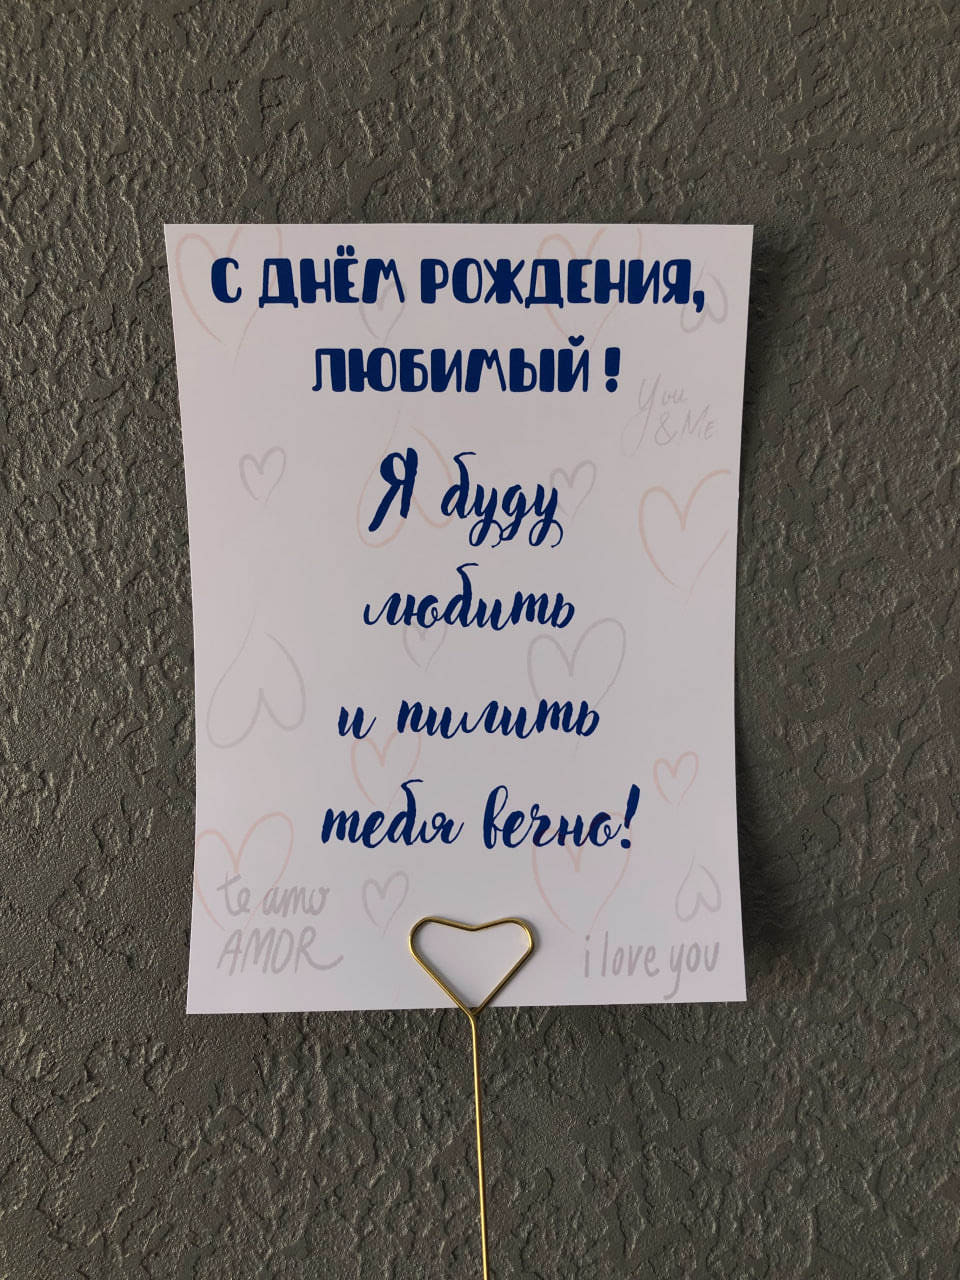 С ДНЁМ РОЖДЕНИЯ,
ЛЮБИМЫЙ!
You
& Me
Я буду
любить
и пилить
тебя вечно!
te amo
AMOR
i love you